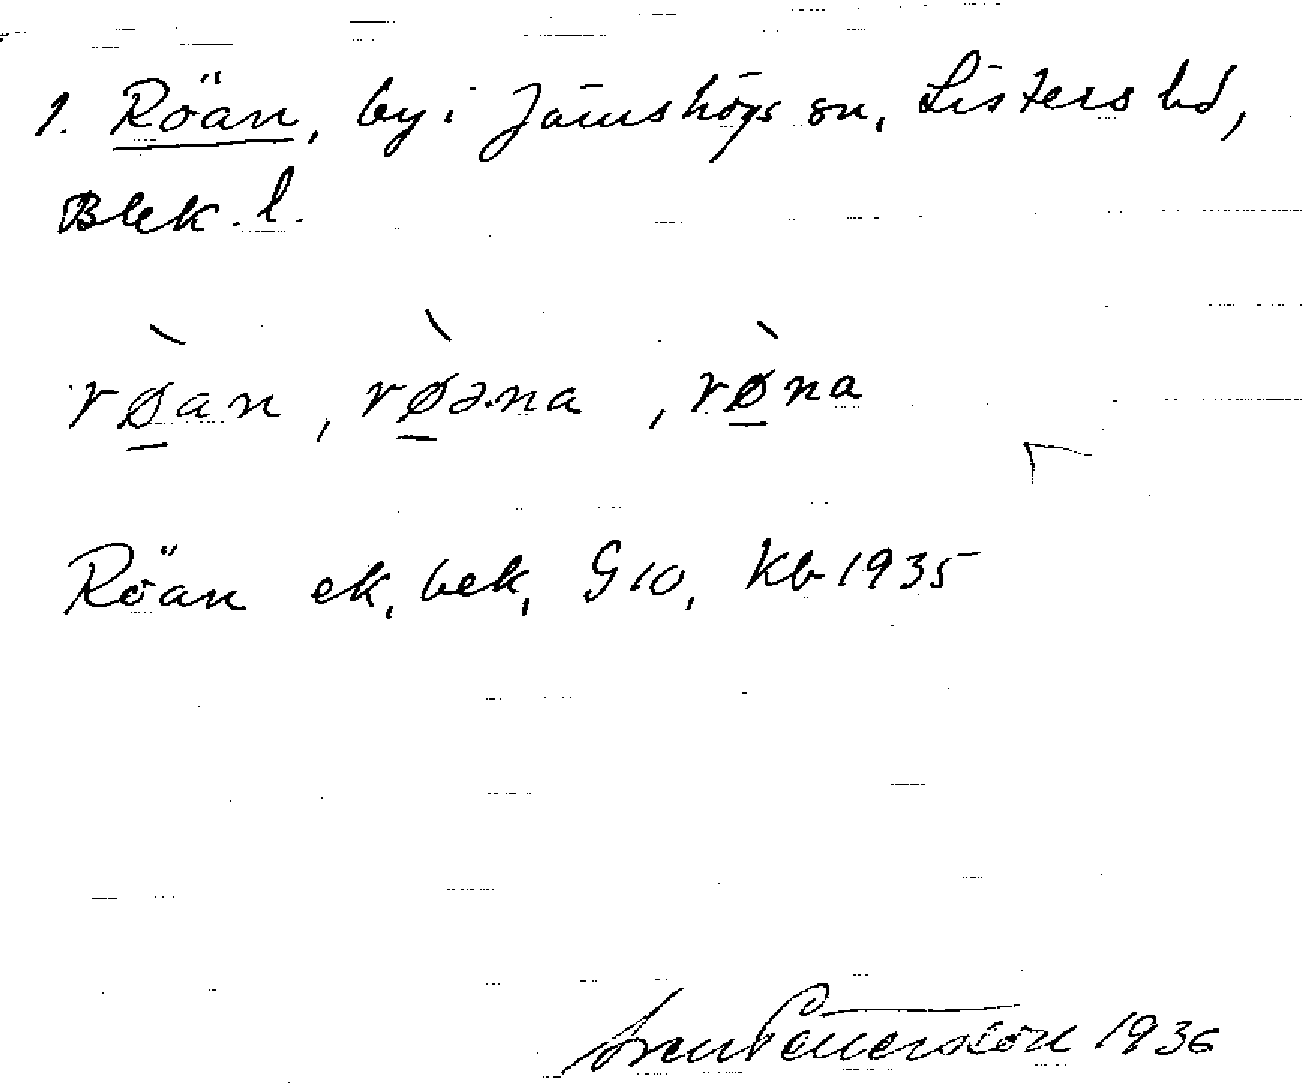 1. Röan, by i Jämshögs sn, Listers hd,
Blek. l.
rø̲̀an, rø̲̀əna, rø̲̀na
Röan ek, bek, G 10, Kb 1935
Sven Pettersson 1936